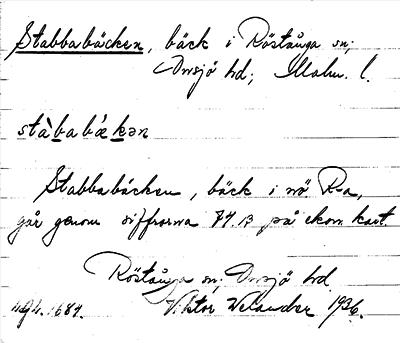 Stabbabäcken, bäck i Röstånga sn;
Onsjö hd; Malm. l.
stàbabǽkən
Stabbabäcken, bäck i nö R-a,
går genom siffrorna 74.B på ekon. kart.
Röstånga sn; Onsjö hd
Viktor Welander 1926.